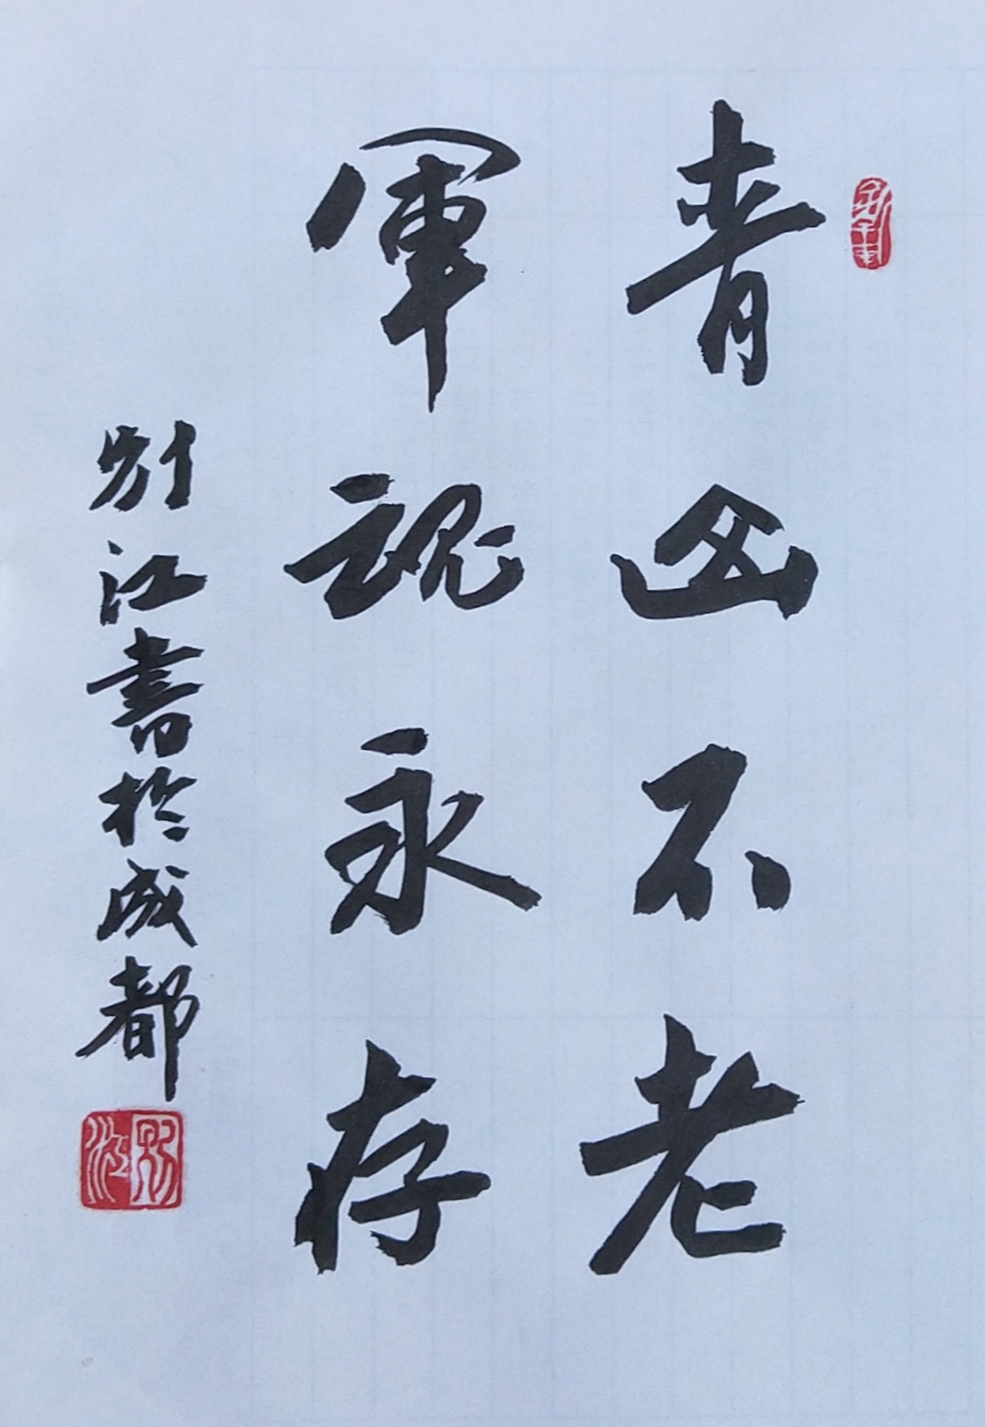 青山不老
軍魂永存
別江書於成都
別江